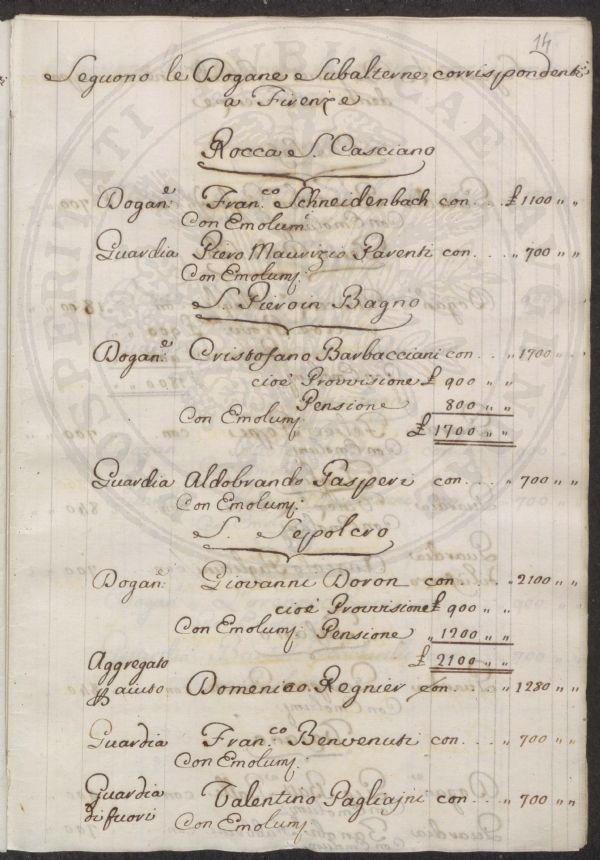 14
Seguono le Dogane Subalterne corrispondenti
a Firenze
Rocca S. Casciano
Dogan.e Fran.co Schneidenbach con . . £ 1100 " "
Con Emolum.
Guardia Piero Maurizio Parenti con . . . " 700 " "
Con Emolum.
S. Piero in Bagno
Dogan.e Cristofano Barbacciani con . . . " 1700 " "
cioè Provvisione £ 900 " "
Pensione 800 " "
Con Emolum. £ 1700 " "
Guardia Aldobrando Gasperi con . . . " 700 " "
Con Emolum.
S. Sepolcro
Dogan.e Giovanni Doron con . . . " 2100 " "
cioè Provvisione £ 900 " "
Con Emolum. Pensione " 1200 " "
£ 2100 " "
Aggregato
Domenico Regnier con . . . " 1280 " "
Guardia Fran.co Benvenuti con . . . " 700 " "
Con Emolum.
Guardia
di fuori Valentino Pagliajni con . . . " 700 " "
Con Emolum.